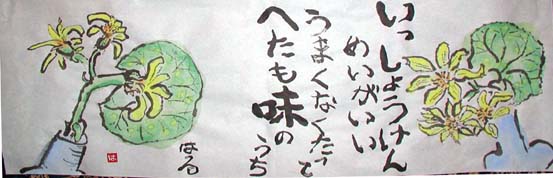 いっしょうけん
めいがいい
うまくなくたって
へたも味の
うち
はる
は